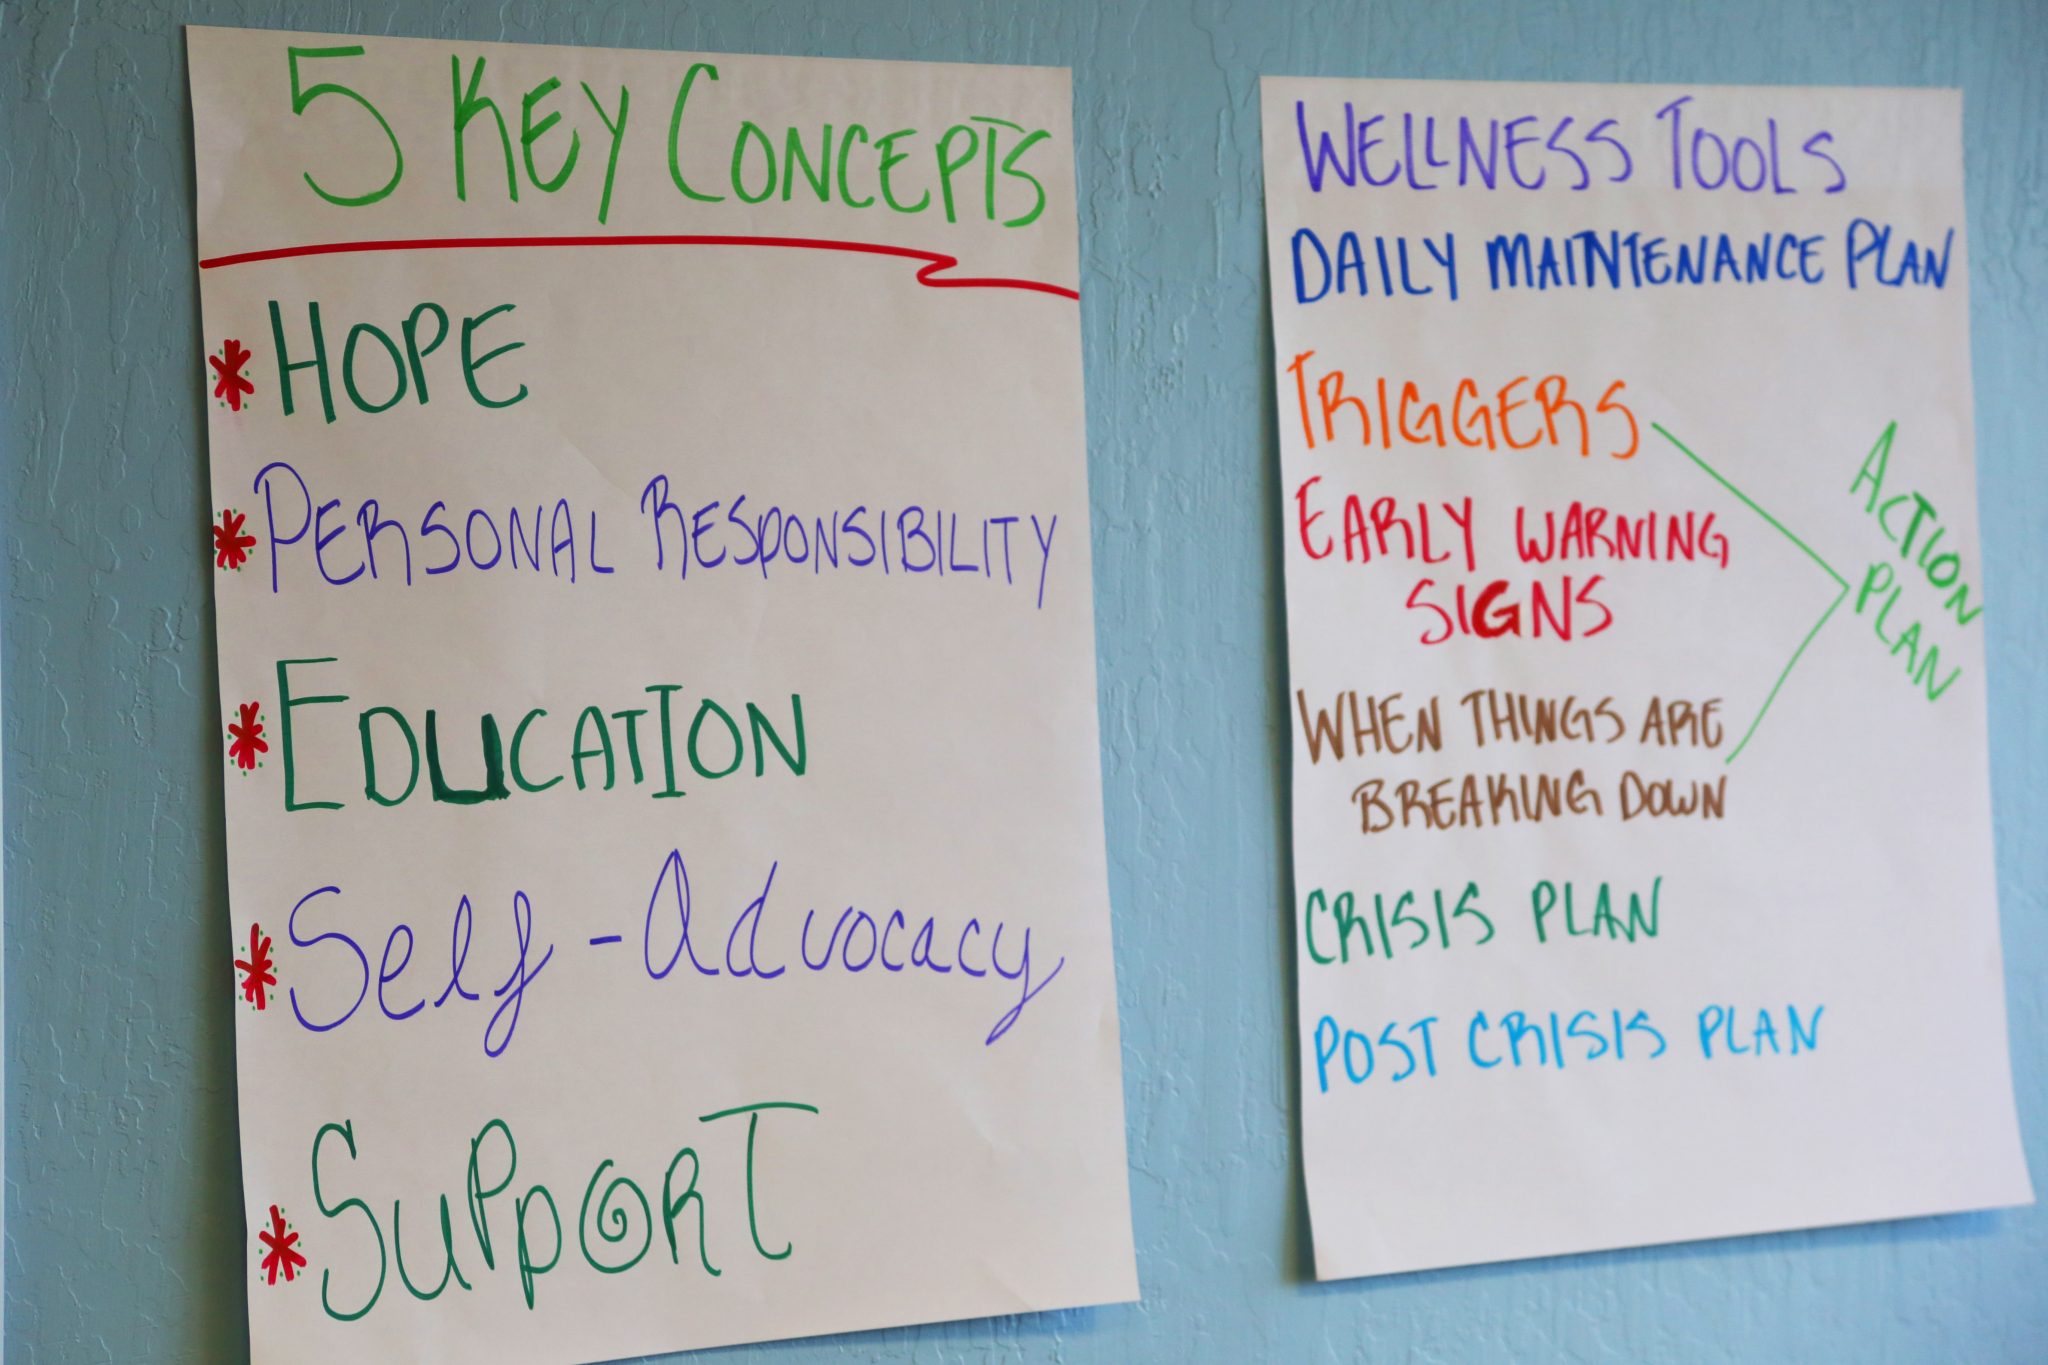 5 KEY CONCEPTS
* HOPE
* PERSONAL RESPONSIBILITY
* EDUCATION
* Self-Advocacy
* SUPPORT
WELLNESS TOOLS
DAILY MAINTENANCE PLAN
TRIGGERS
EARLY WARNING
SIGNS
WHEN THINGS ARE
BREAKING DOWN
ACTION
PLAN
CRISIS PLAN
POST CRISIS PLAN